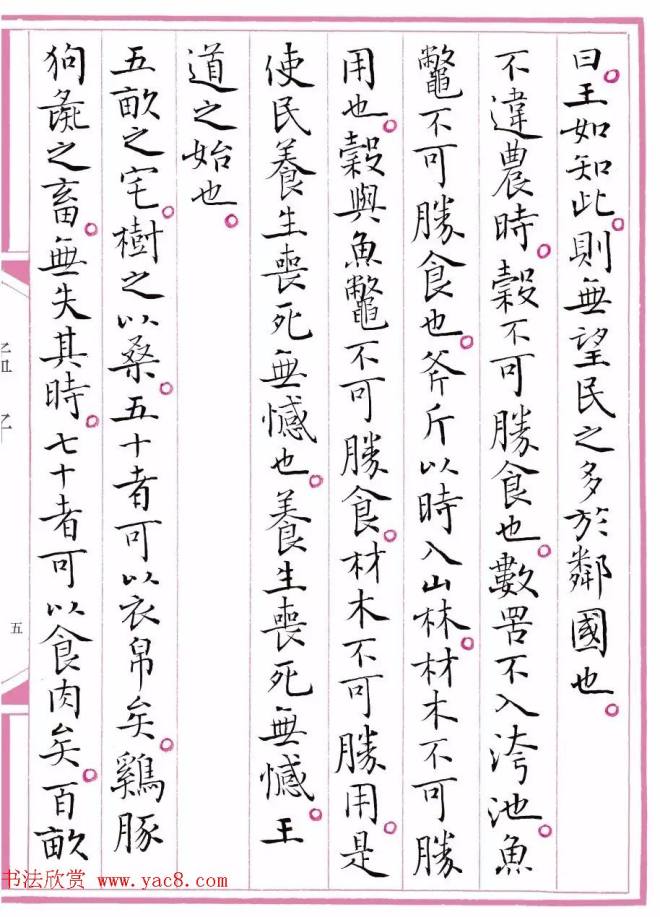 曰。王如知此。則無望民之多於鄰國也。
不違農時。穀不可勝食也。數罟不入洿池。魚
鼈不可勝食也。斧斤以時入山林。材木不可勝
用也。穀與魚鼈不可勝食。材木不可勝用。是
使民養生喪死無憾也。養生喪死無憾。王
道之始也。
五畝之宅。樹之以桑。五十者可以衣帛矣。鷄豚
狗彘之畜。無失其時。七十者可以食肉矣。百畝
五
书法欣赏 www.yac8.com